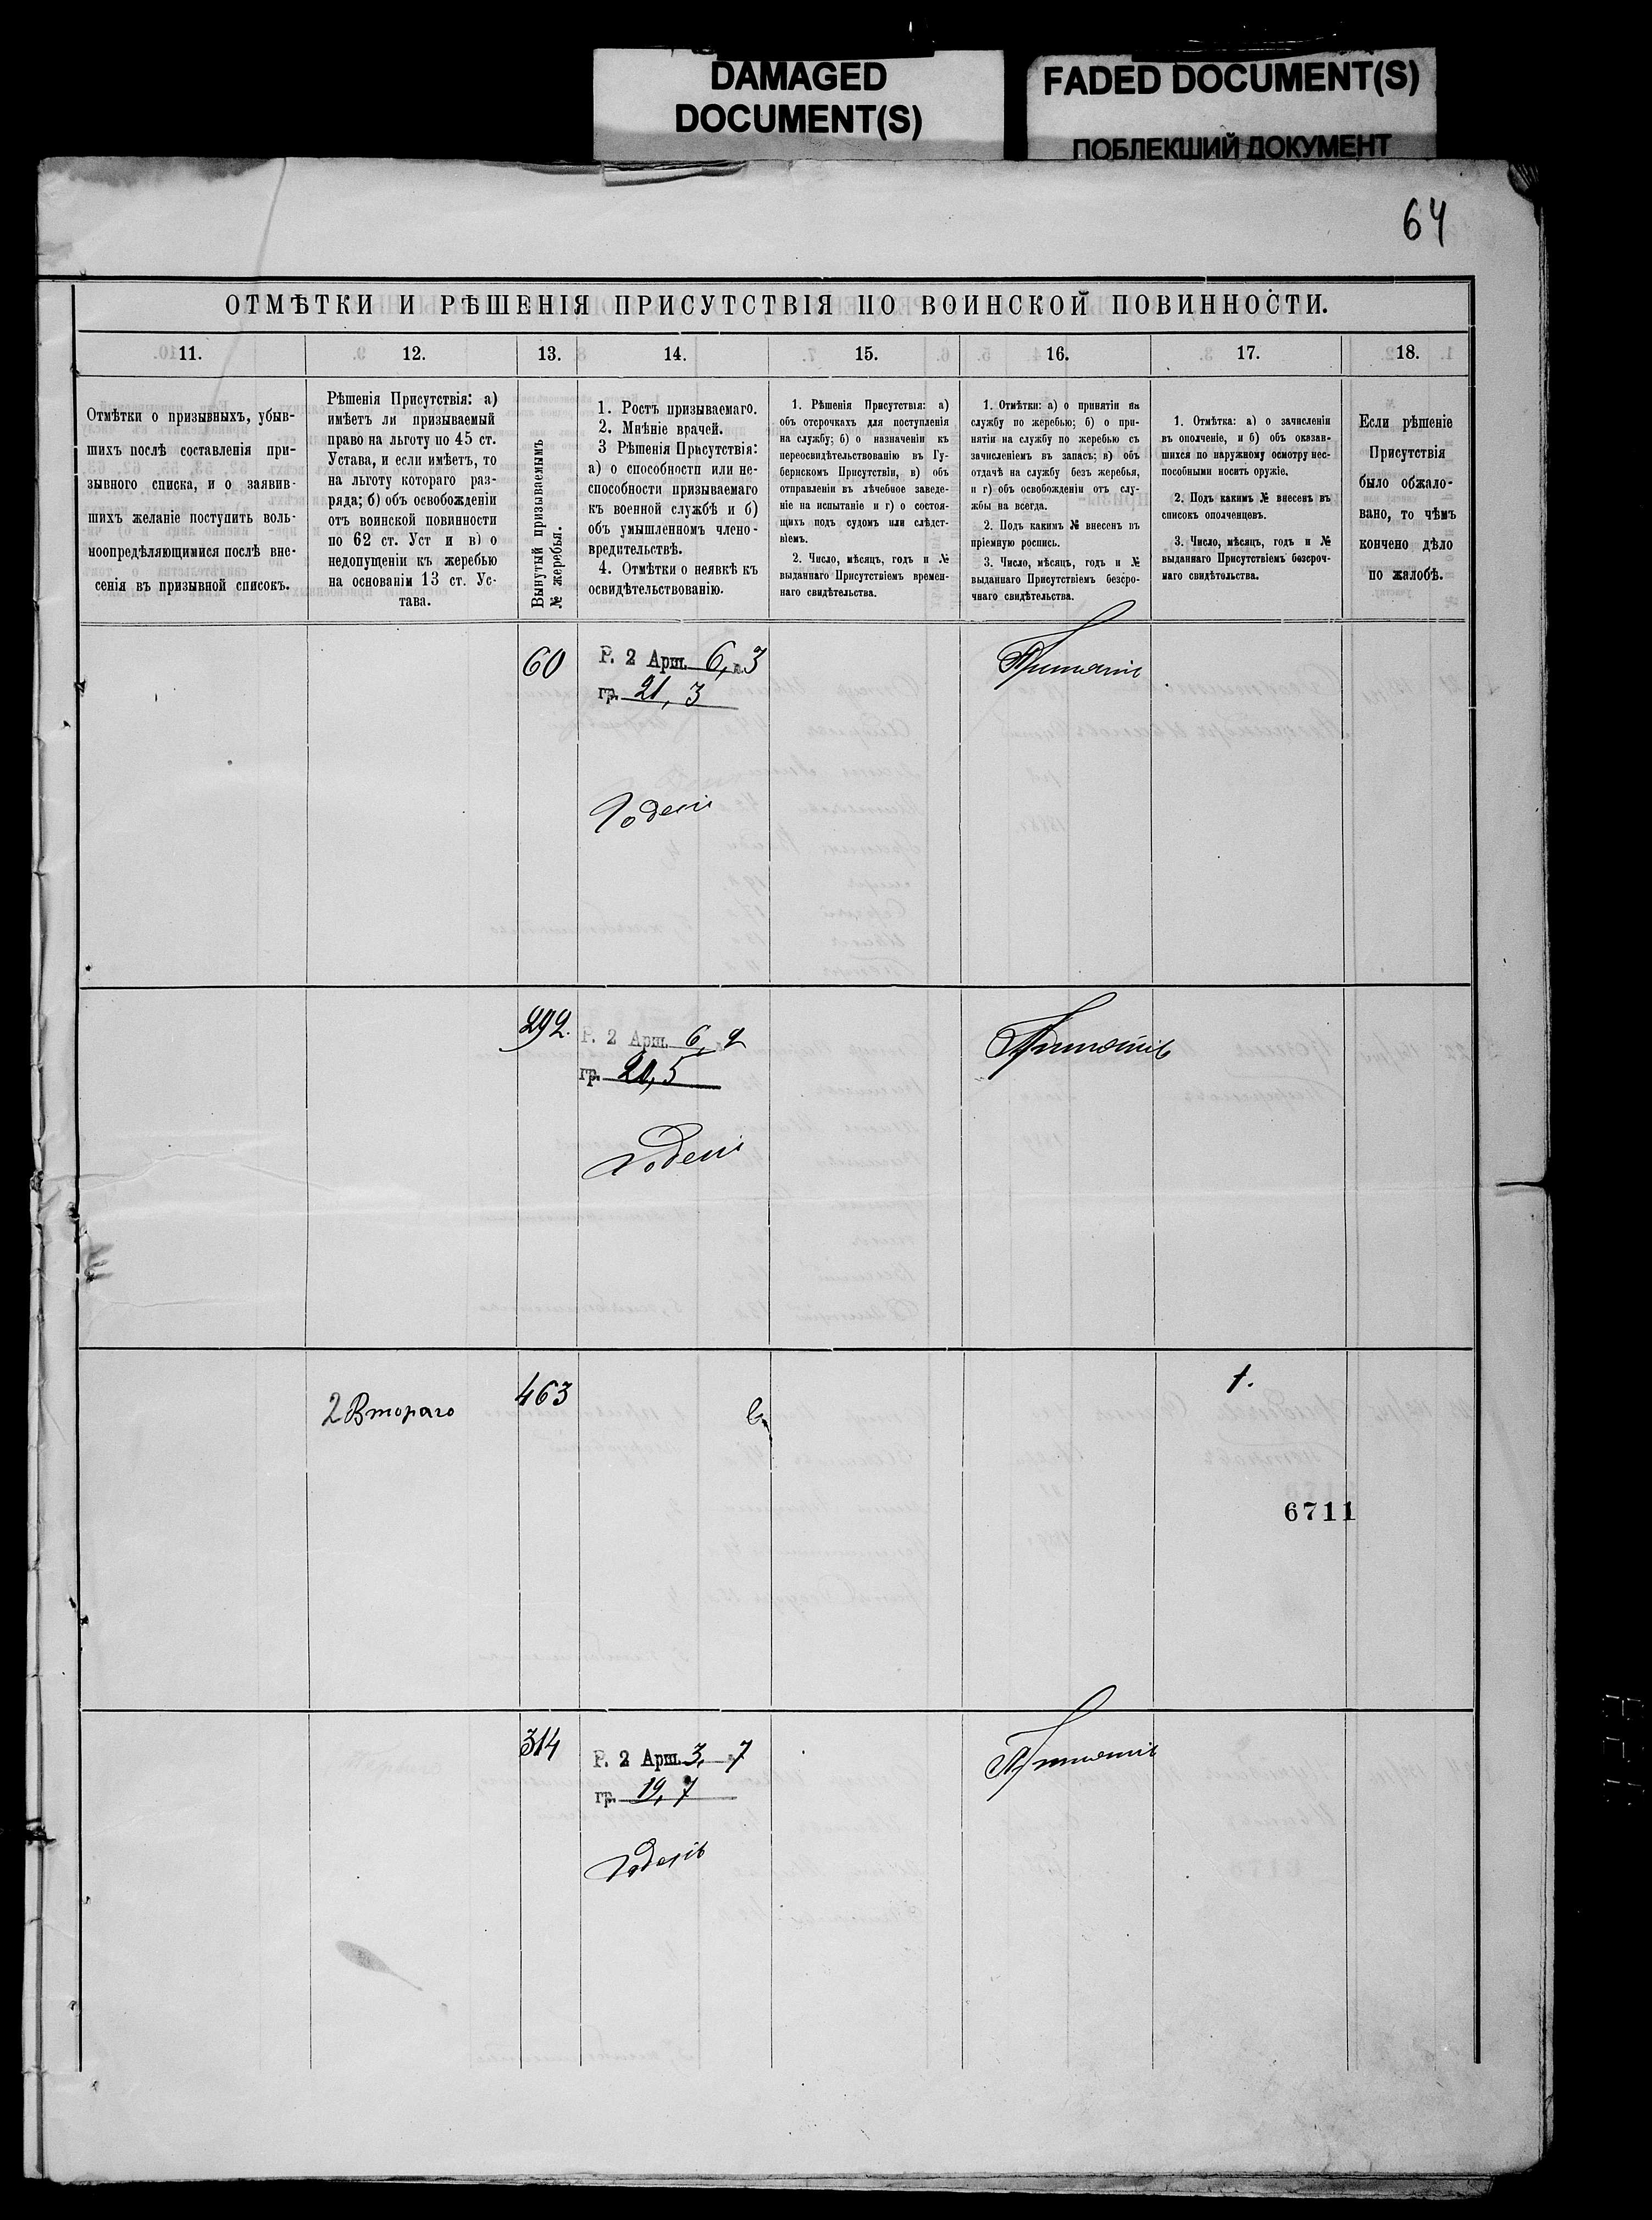 DAMAGED
DOCUMENT(S)
FADED DOCUMENT(S)
ПОБЛЕКШИЙ ДОКУМЕНТ
64
ОТМѢТКИ И РѢШЕНІЯ ПРИСУТСТВІЯ ПО ВОИНСКОЙ ПОВИННОСТИ.
11.
12.
13.
14.
15.
16.
17.
18.
Отмѣтки о призывныхъ, убыв-
шихъ послѣ составленія при-
зывного списка, и о заявив-
шихъ желаніе поступить воль-
ноопредѣляющимися послѣ вне-
сенія въ призывной списокъ.
Рѣшенія Присутствія: а)
имѣетъ ли призываемый
право на льготу по 45 ст.
Устава, и если имѣетъ, то
на льготу котораго раз-
ряда; б) объ освобожденіи
отъ воинской повинности
по 62 ст. Уст и в) о
недопущеніи къ жеребью
на основаніи 13 ст. Ус-
тава.
Вынутый призываемымъ
№ жеребья.
1. Ростъ призываемаго.
2. Мнѣніе врачей.
3 Рѣшенія Присутствія:
а) о способности или не-
способности призываемаго
къ военной службѣ и б)
объ умышленномъ члено-
вредительствѣ.
4. Отмѣтки о неявкѣ къ
освидѣтельствованію.
1. Рѣшенія Присутствія: а)
объ отсрочкахъ для поступленія
на службу; б) о назначеніи къ
переосвидѣтельствованію въ Гу-
бернскомъ Присутствіи, в) объ
отправленіи въ лѣчебное заведе-
ніе на испытаніе и г) о состоя-
щихъ подъ судомъ или слѣдст-
віемъ.
2. Число, мѣсяцъ, годъ и №
выданнаго Присутствіемъ времен-
наго свидѣтельства.
1. Отмѣтки: а) о принятіи на
службу по жеребью; б) о при-
нятіи на службу по жеребью съ
зачисленіемъ въ запасъ; в) объ
отдачѣ на службу безъ жеребья,
и г) объ освобожденіи отъ слу-
жбы на всегда.
2. Подъ какимъ № внесенъ въ
пріемную роспись.
3. Число, мѣсяцъ, годъ и №
выданнаго Присутствіемъ безсро-
чнаго свидѣтельства.
1. Отмѣтка: а) о зачисленіи
въ ополченіе, и б) объ оказав-
шихся по наружному осмотру нес-
пособными носить оружіе.
2. Подъ какимъ № внесенъ въ
списокъ ополченцевъ.
3. Число, мѣсяцъ, годъ и №
выданнаго Присутствіемъ безсроч-
наго свидѣтельства.
Если рѣшеніе
Присутствія
было обжало-
вано, то чѣмъ
кончено дѣло
по жалобѣ.
60
Р. 2 Арш. 6, 3
гр. 21, 3
Годенъ
Принятъ
292.
Р. 2 Арш. 6, 2
гр. 20,5
Годенъ
Принятъ
2 Втораго
463
1.
6711
314
Р. 2 Арш. 3, 7
гр. 19, 7
Годенъ
Принятъ